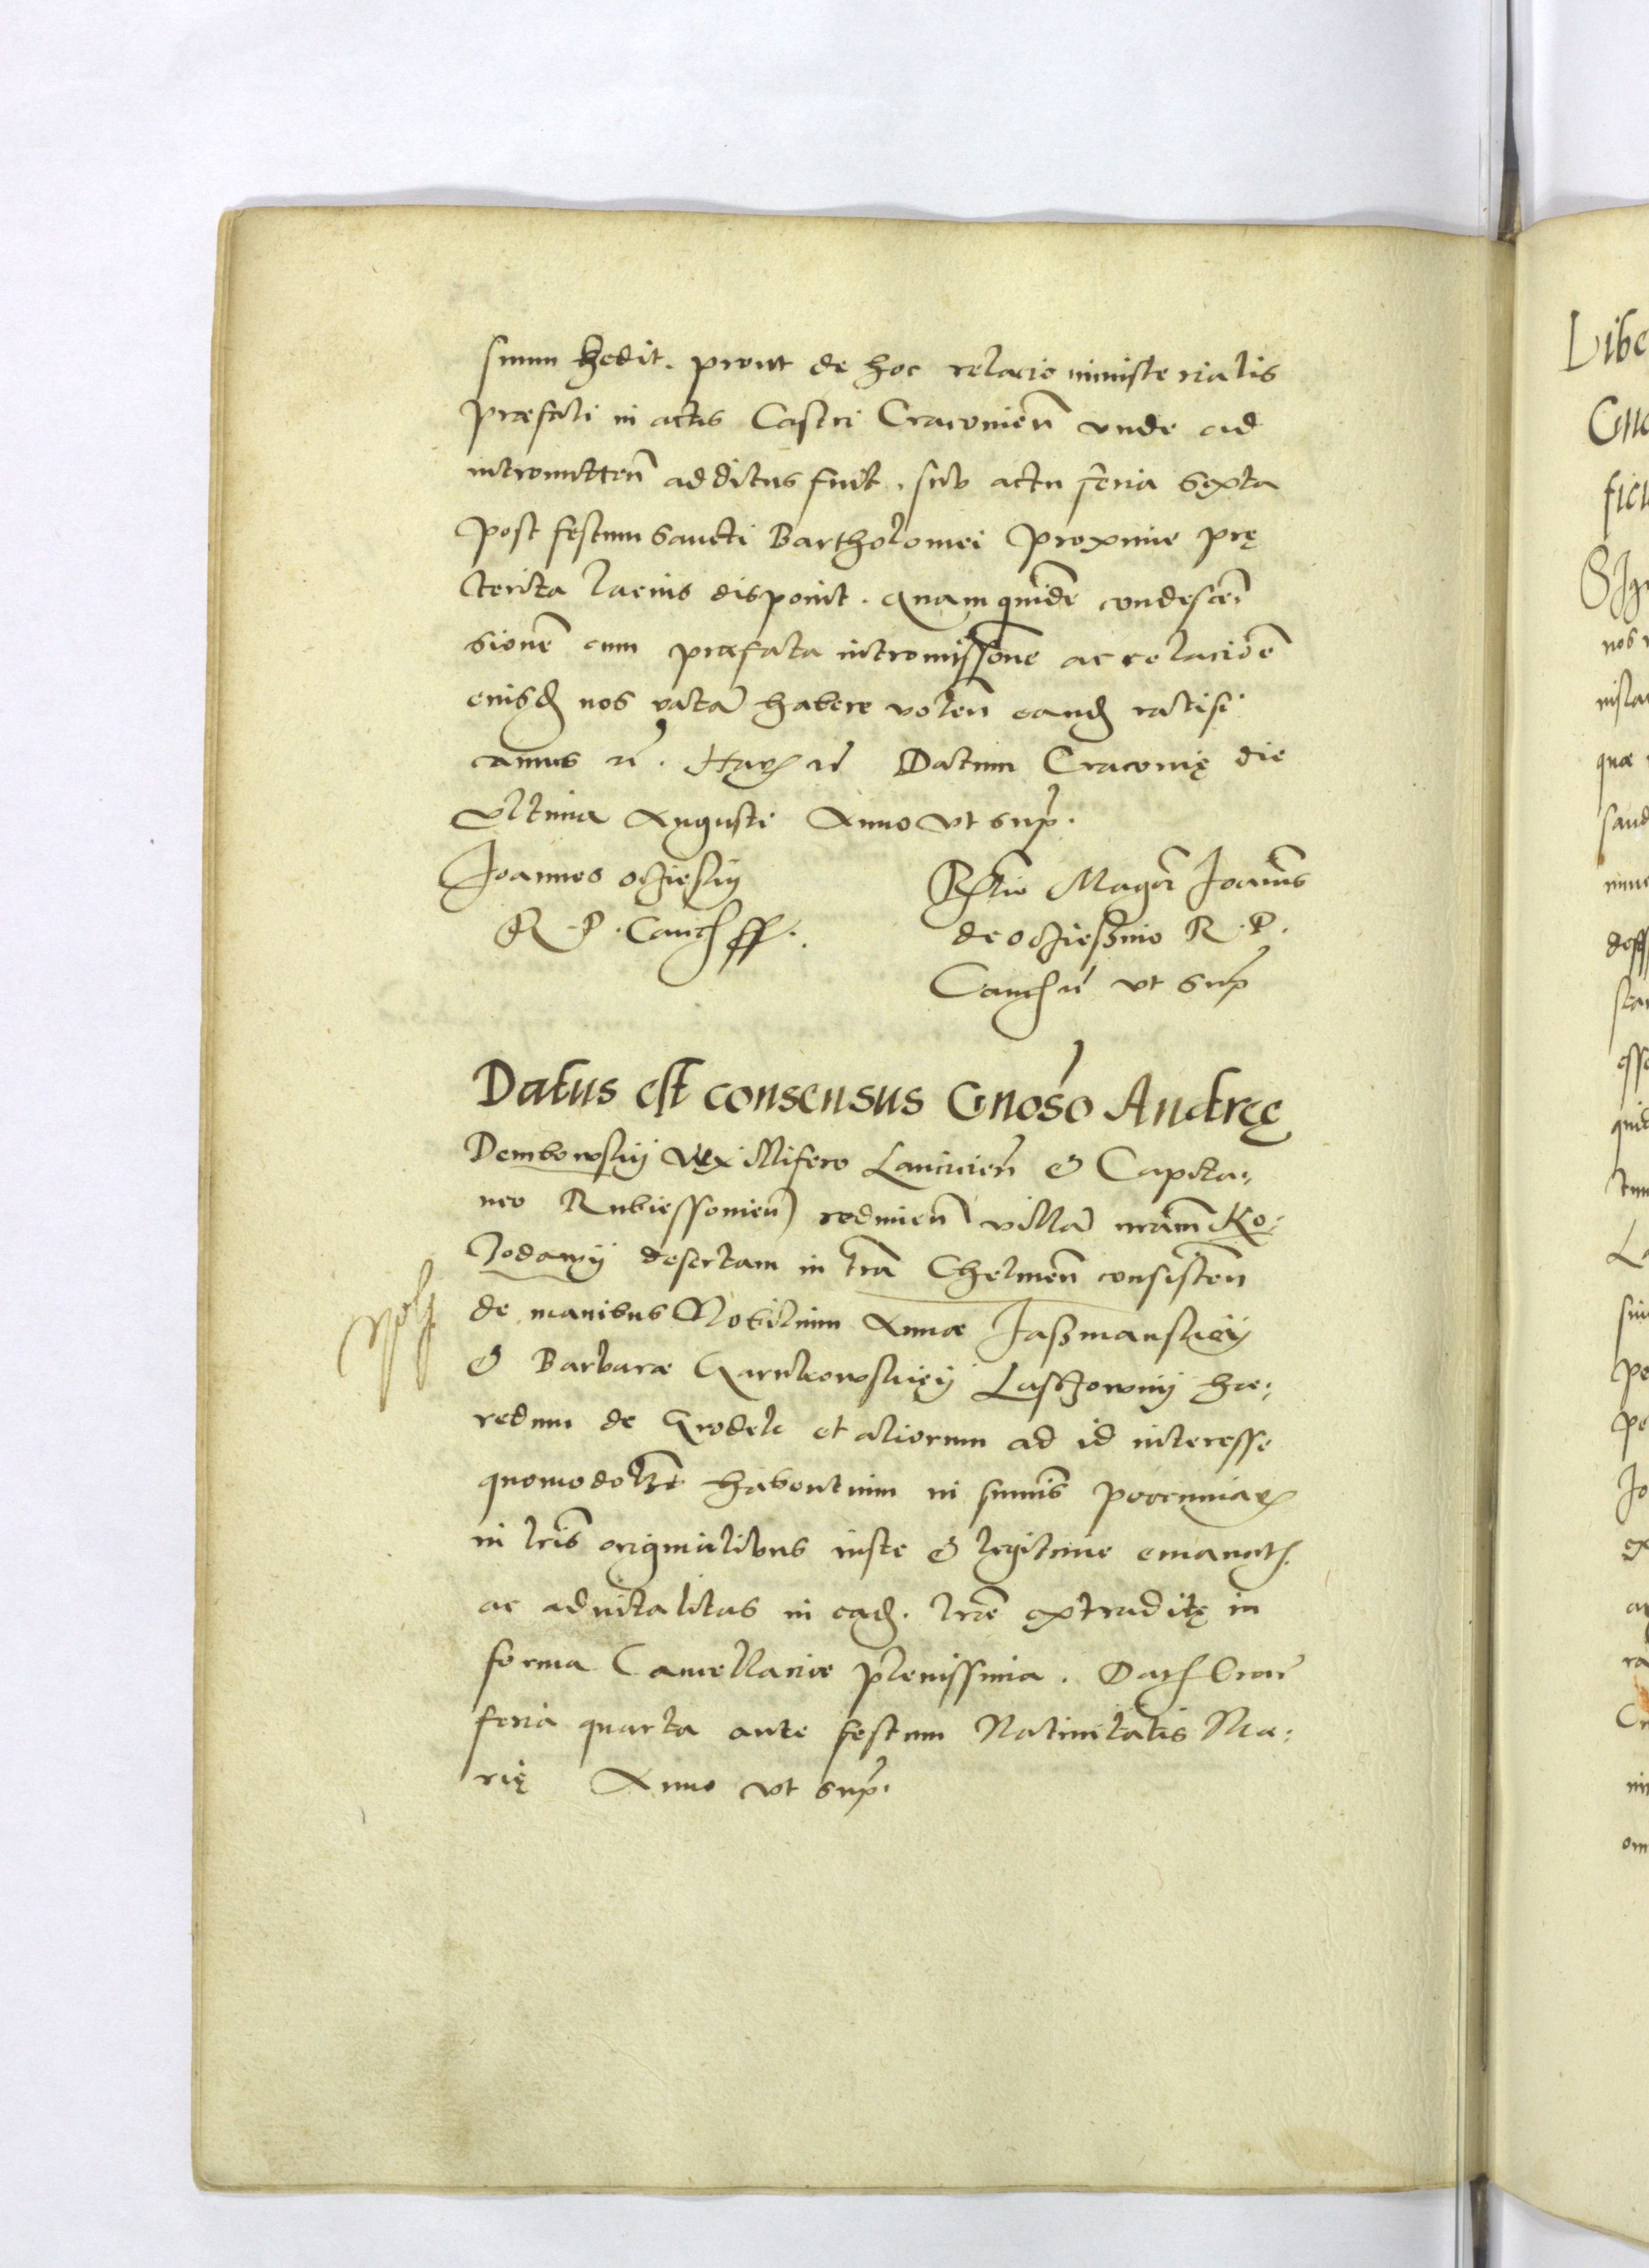 suum dedit. prout de hoc relacio ministerialis
præfati in actis Castri Cracovien unde ad
intromitten additus fuit, sub actu feria sexta
post festum Sancti Bartholomei proxime prę
terita lacius disponit. Quam quidē condescen
sionē cum præfata intromissione ac relacionē
eiusd nos ratā habere volen eand ratifi
camus
Datum Cracovię die
Ultima Augusti Anno ut sup.
Joannes ocziesky
R. P. Canc ss.
Rlio Magci Joannis
de ocziesznio R. P.
Canc ut sup
Datus est consensus Gnoso Andreę
Dembowsky Vexillifero Lancicien & Capita:
neo Rubiessovien redimen villā nram Ko:
lodawy desertam in tra Chelmen consisten
de manibus Nobilium Annæ Jaszmanskiey
& Barbaræ Garnkowskiey Lasczowny hæ:
redum de Grodek et aliorum ad id interesse
quomodolibet habentium in summis pecuniar
in lris originalibus iuste & legitime emanat
ac advitalitas in ead. lræ extraditę in
forma Cancellariæ plenissima. Dat Crac
feria quarta ante festum Nativitatis Ma:
rię Anno ut sup.
Libe